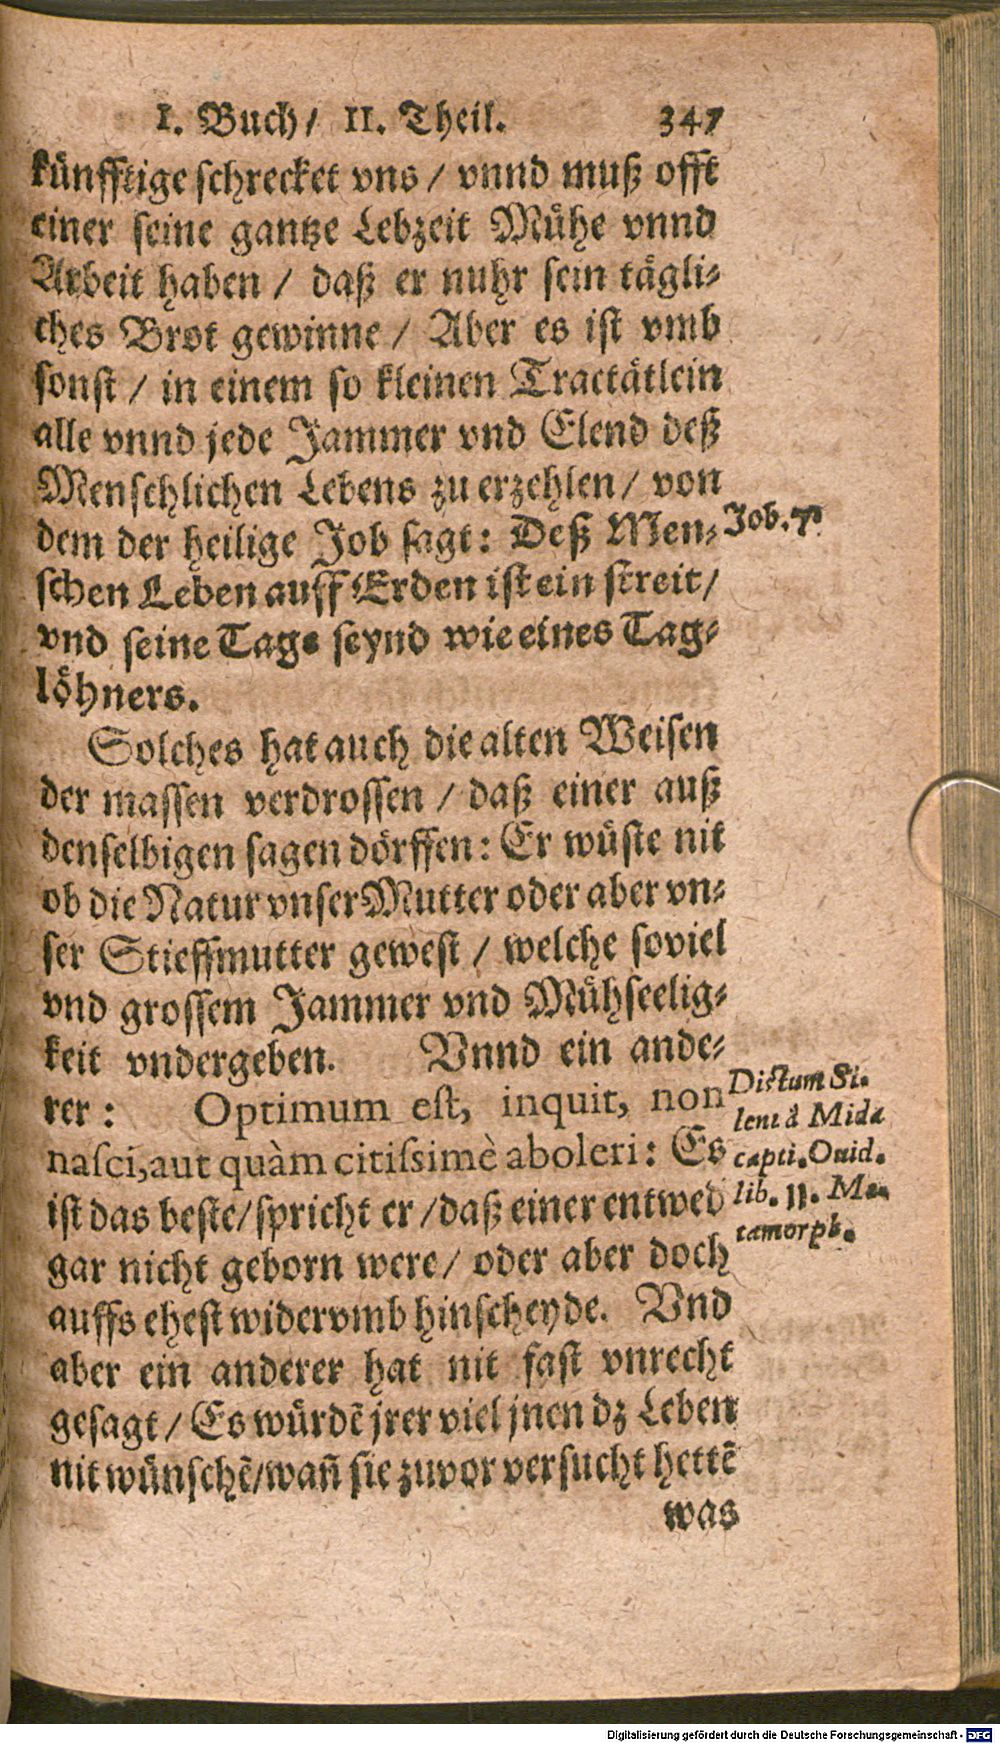 I. Buch/ II. Theil. 347
künfftige schrecket vns / vnnd muß offt
einer seine gantze Lebzeit Mühe vnnd
Arbeit haben / daß er nuhr sein tägli-
ches Brot gewinne / Aber es ist vmb
sonst / in einem so kleinen Tractätlein
alle vnnd jede Jammer vnd Elend deß
Menschlichen Lebens zu erzehlen / von
dem der heilige Job sagt: Deß Men-
Job. 7.
schen Leben auff Erden ist ein streit /
vnd seine Tage seynd wie eines Tag-
löhners.
Solches hat auch die alten Weisen
der massen verdrossen / daß einer auß
denselbigen sagen dörffen: Er wüste nit
ob die Natur vnser Mutter oder aber vn-
ser Stieffmutter gewest / welche soviel
vnd grossem Jammer vnd Mühseelig-
keit vndergeben. Vnnd ein ande-
rer: Optimum est, inquit, non
nasci, aut quàm citissimè aboleri: Es
ist das beste / spricht er / daß einer entwed
gar nicht geborn were / oder aber doch
auffs ehest widervmb hinscheyde. Vnd
aber ein anderer hat nit fast vnrecht
gesagt / Es würdē jrer viel jnen dz Leben
nit wünschē / wañ sie zuvor versucht hettē
was
Dictum Si-
leni à Mida
capti. Ouid.
lib. 11. Me-
tamorph.
Digitalisierung gefördert durch die Deutsche Forschungsgemeinschaft - DFG